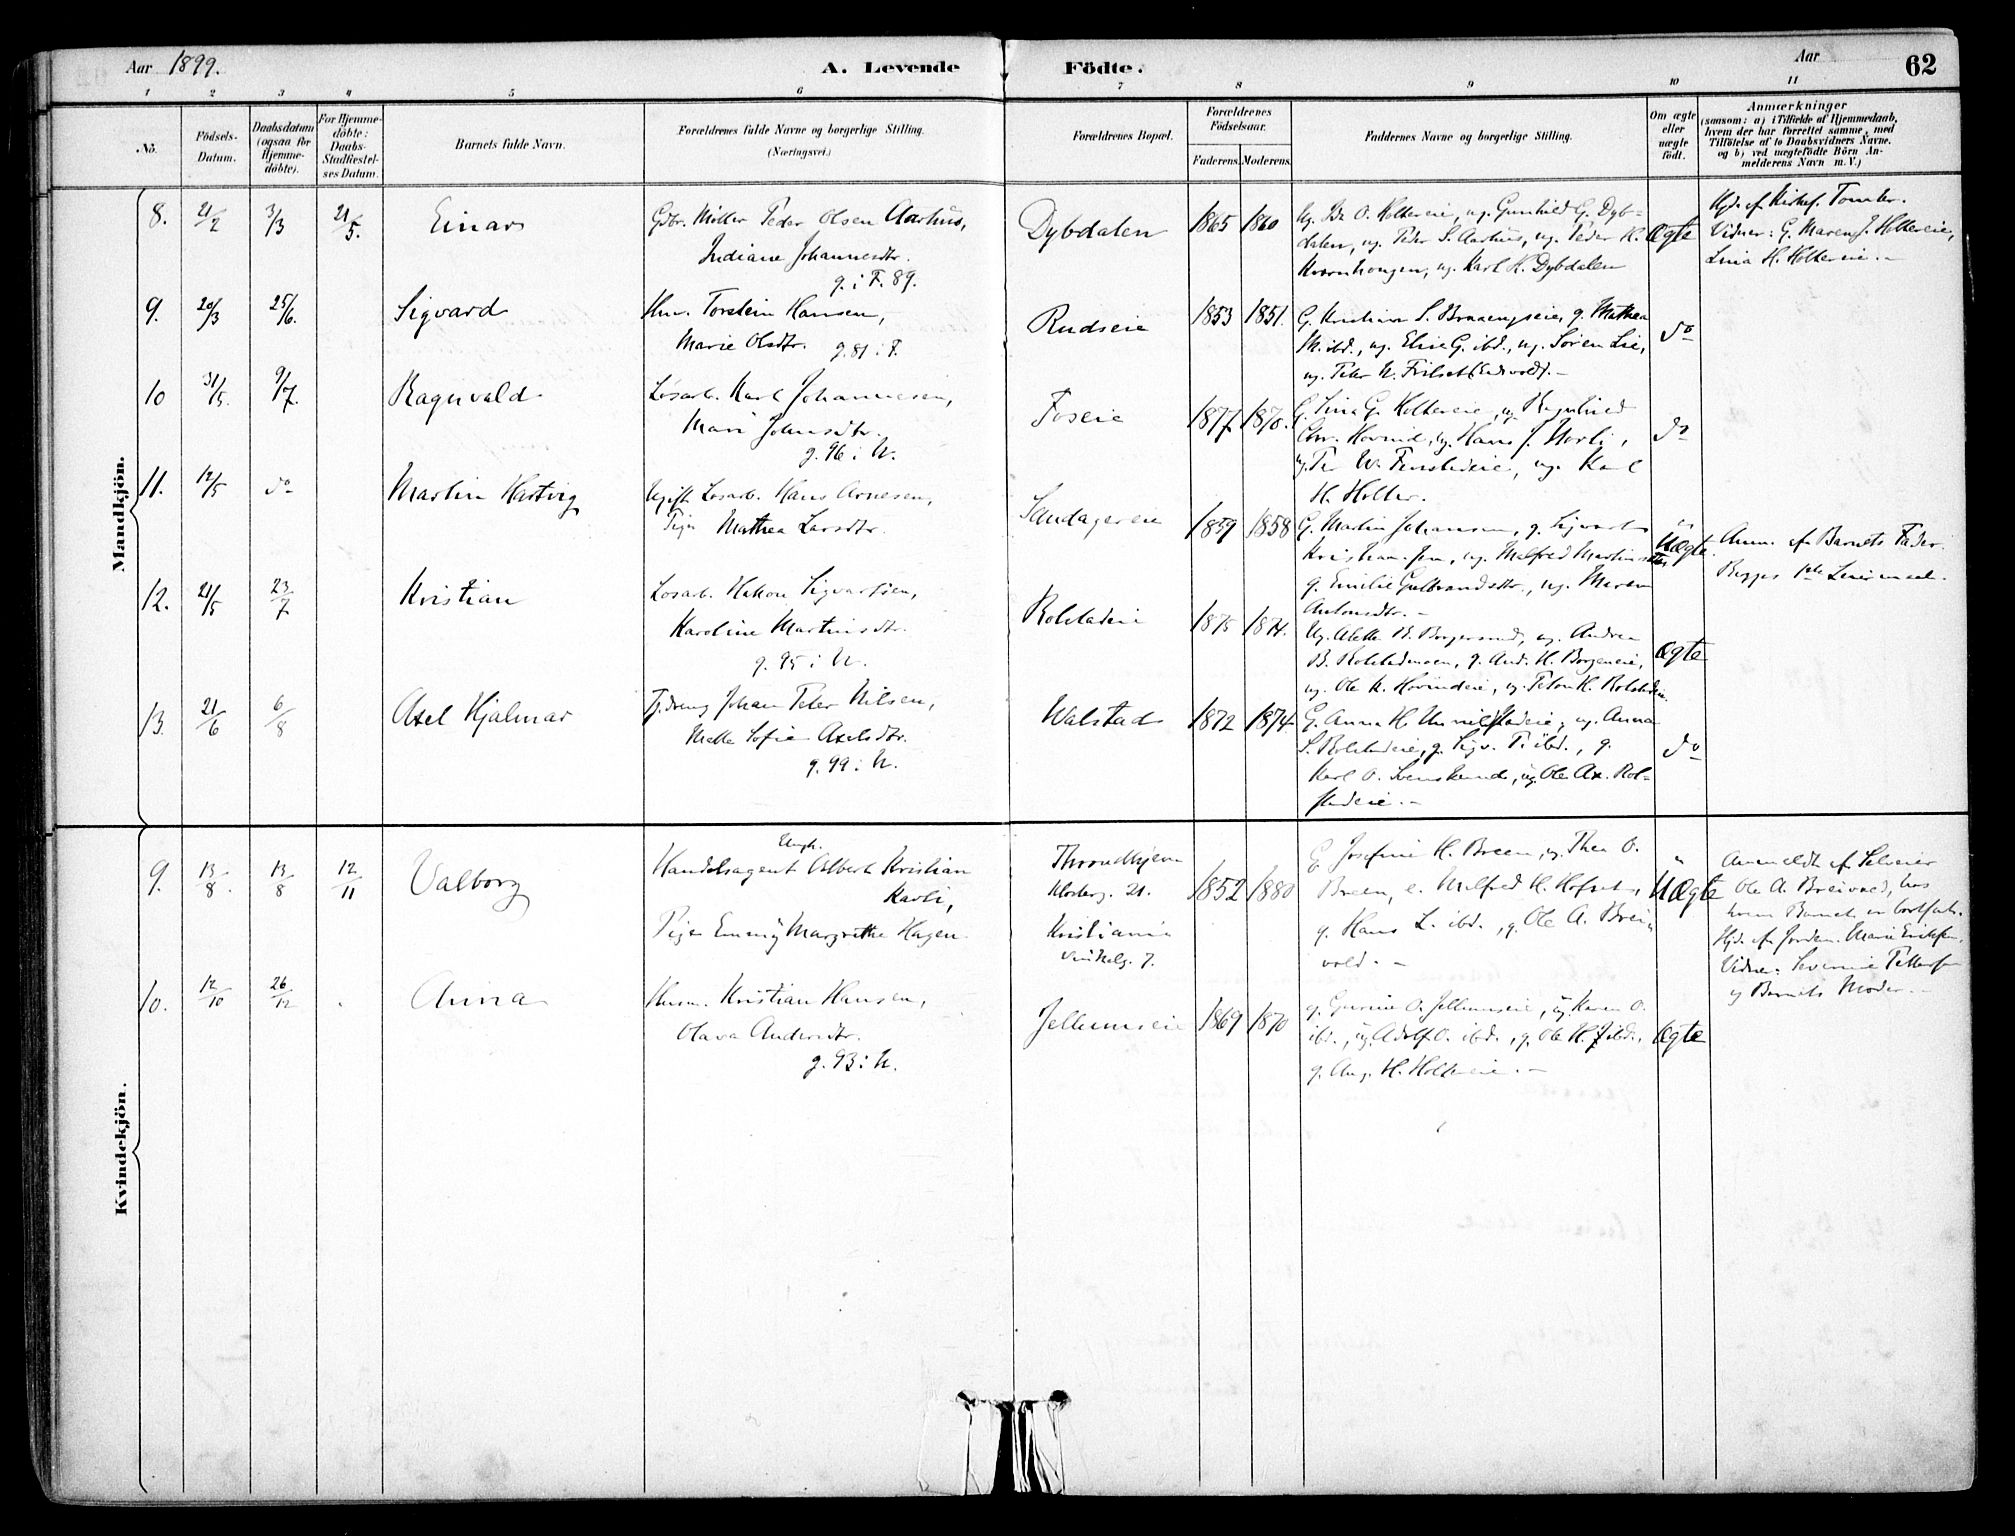 Aar 1899.
A. Levende Födte.
Aar
62
1 2 3 4 5 6 7 8 9 10 11
No.
Födsels-Datum.
Daabsdatum (ogsaa for Hjemme-döbte).
For Hjemme-döbte: Daabs-Stadfæstel-ses Datum.
Barnets fulde Navn.
Forældrenes fulde Navne og borgerlige Stilling.
(Næringsvei.)
Forældrenes Bopæl.
Forældrenes Födselsaar.
Faderens. Moderens.
Faddernes Navne og borgerlige Stilling.
Om ægte eller uægte födt.
Anmærkninger
(saasom: a) i Tilfælde af Hjemmedaab, hvem der har forrettet samme, med Tilföielse af to Daabsvidners Navne. og b) ved uægtefödte Börn An-melderens Navn m. V.)
Mandkjön.
8. 21/2 3/3 21/5. Einar
Gdbr. Møller Peder Olsen Aarhus,
Indiane Johannesdtr.
g. i F. 89.
Dybdalen 1865 1860
dalen, ug. Peder S. Aarhus, ug. Peder K.
ug. Karl K. Dybdalen
Ægte
Vidner: G. Maren J. Holtereie,
Lina H. Holtereie. –
9. 20/3 25/6. Sigvard
Hm. Torstein Hansen,
Marie Olsdtr. g. 81 i F.
Rudseie 1853 1851.
M. ibd., ug. Elise G. ibd., ug. Søren Lie,
do
10 31/5. 9/7. Ragnvald
Løsarb. Karl Johannesen,
Mari Johnsdtr.
g. 96 i N.
Foseie 1877 1870.
G. Lina G. Holtereie, ug. Ragnhild
Chr. Hovind, ug. Hans J. Norli,
ug. Karl
H. Holter.
do
11. 12/5 do Martin Hartvig
Ugift Løsarb. Hans Arnesen,
Pige Mathea Larsdtr.
Sandagereie 1859 1858
G. Martin Johansen, g. Sigvart
Kristiansen, ug. Malfred Martinsdtr,
g. Emilie Gulbrandsdtr., ug. Maren
Antonsdtr. –
Uægte.
Anm. af Barnets Fader.
Begges 1ste Leiermaal.
12. 21/5 23/7 Kristian
Løsarb. Hakon Sigvartsen,
Karoline Martinsdtr.
g. 95 i N.
Rolstadeie 1875 1874.
ug. Andrea
B. Rolstadmoen, g. And. H. Borgeneie,
ug. Ole K. Hovindeie, ug. Peton K. Rolstadeie.
Ægte
13. 21/6 6/8 Axel Hjalmar
Tj.dreng Johan Peter Nilsen,
Mette Sofie Axelsdtr.
g. 99 i N.
Walstad 1872 1874
ug. Anna
S. Rolstadeie, g. Sigv. P. ibd., g.
Karl O. Svenskerud, ug. Ole Ax. Rol-
stadeie. –
do
Kvindekjön.
9. 13/8. 13/8 12/11 Valborg
Ungk.
Handelsagent Albert Kristian
Kavli,
Pige Emmy Margrethe Hagen.
Throndhjem
Klosterg. 21.
Kristiania
Vinkelg. 7.
1852 1880
G. Josefine H. Breen, ug. Thea O.
Breen, e. Malfred H. Hofset,
g. Hans L. ibd., g. Ole A. Brei
vold. –
Uægte
Anmeldt af Selveier
Ole A. Breivold, hos
hvem Barnet er bortsat.
Hjd. af Jordm. Marie Eriksen.
Vidner: Severine Pettersen
og Barnets Moder. –
10. 12/10 26/12 . Anna
Husm. Kristian Hansen,
Olava Andersdtr.
g. 93 i N.
Jellumseie 1869 1870
g. Gurine O. Jellumseie, ug. Karen O.
ibd., ug. Adolf O. ibd., g. Ole H. ibd.,
g. Aug. H. Holtereie. –
Ægte